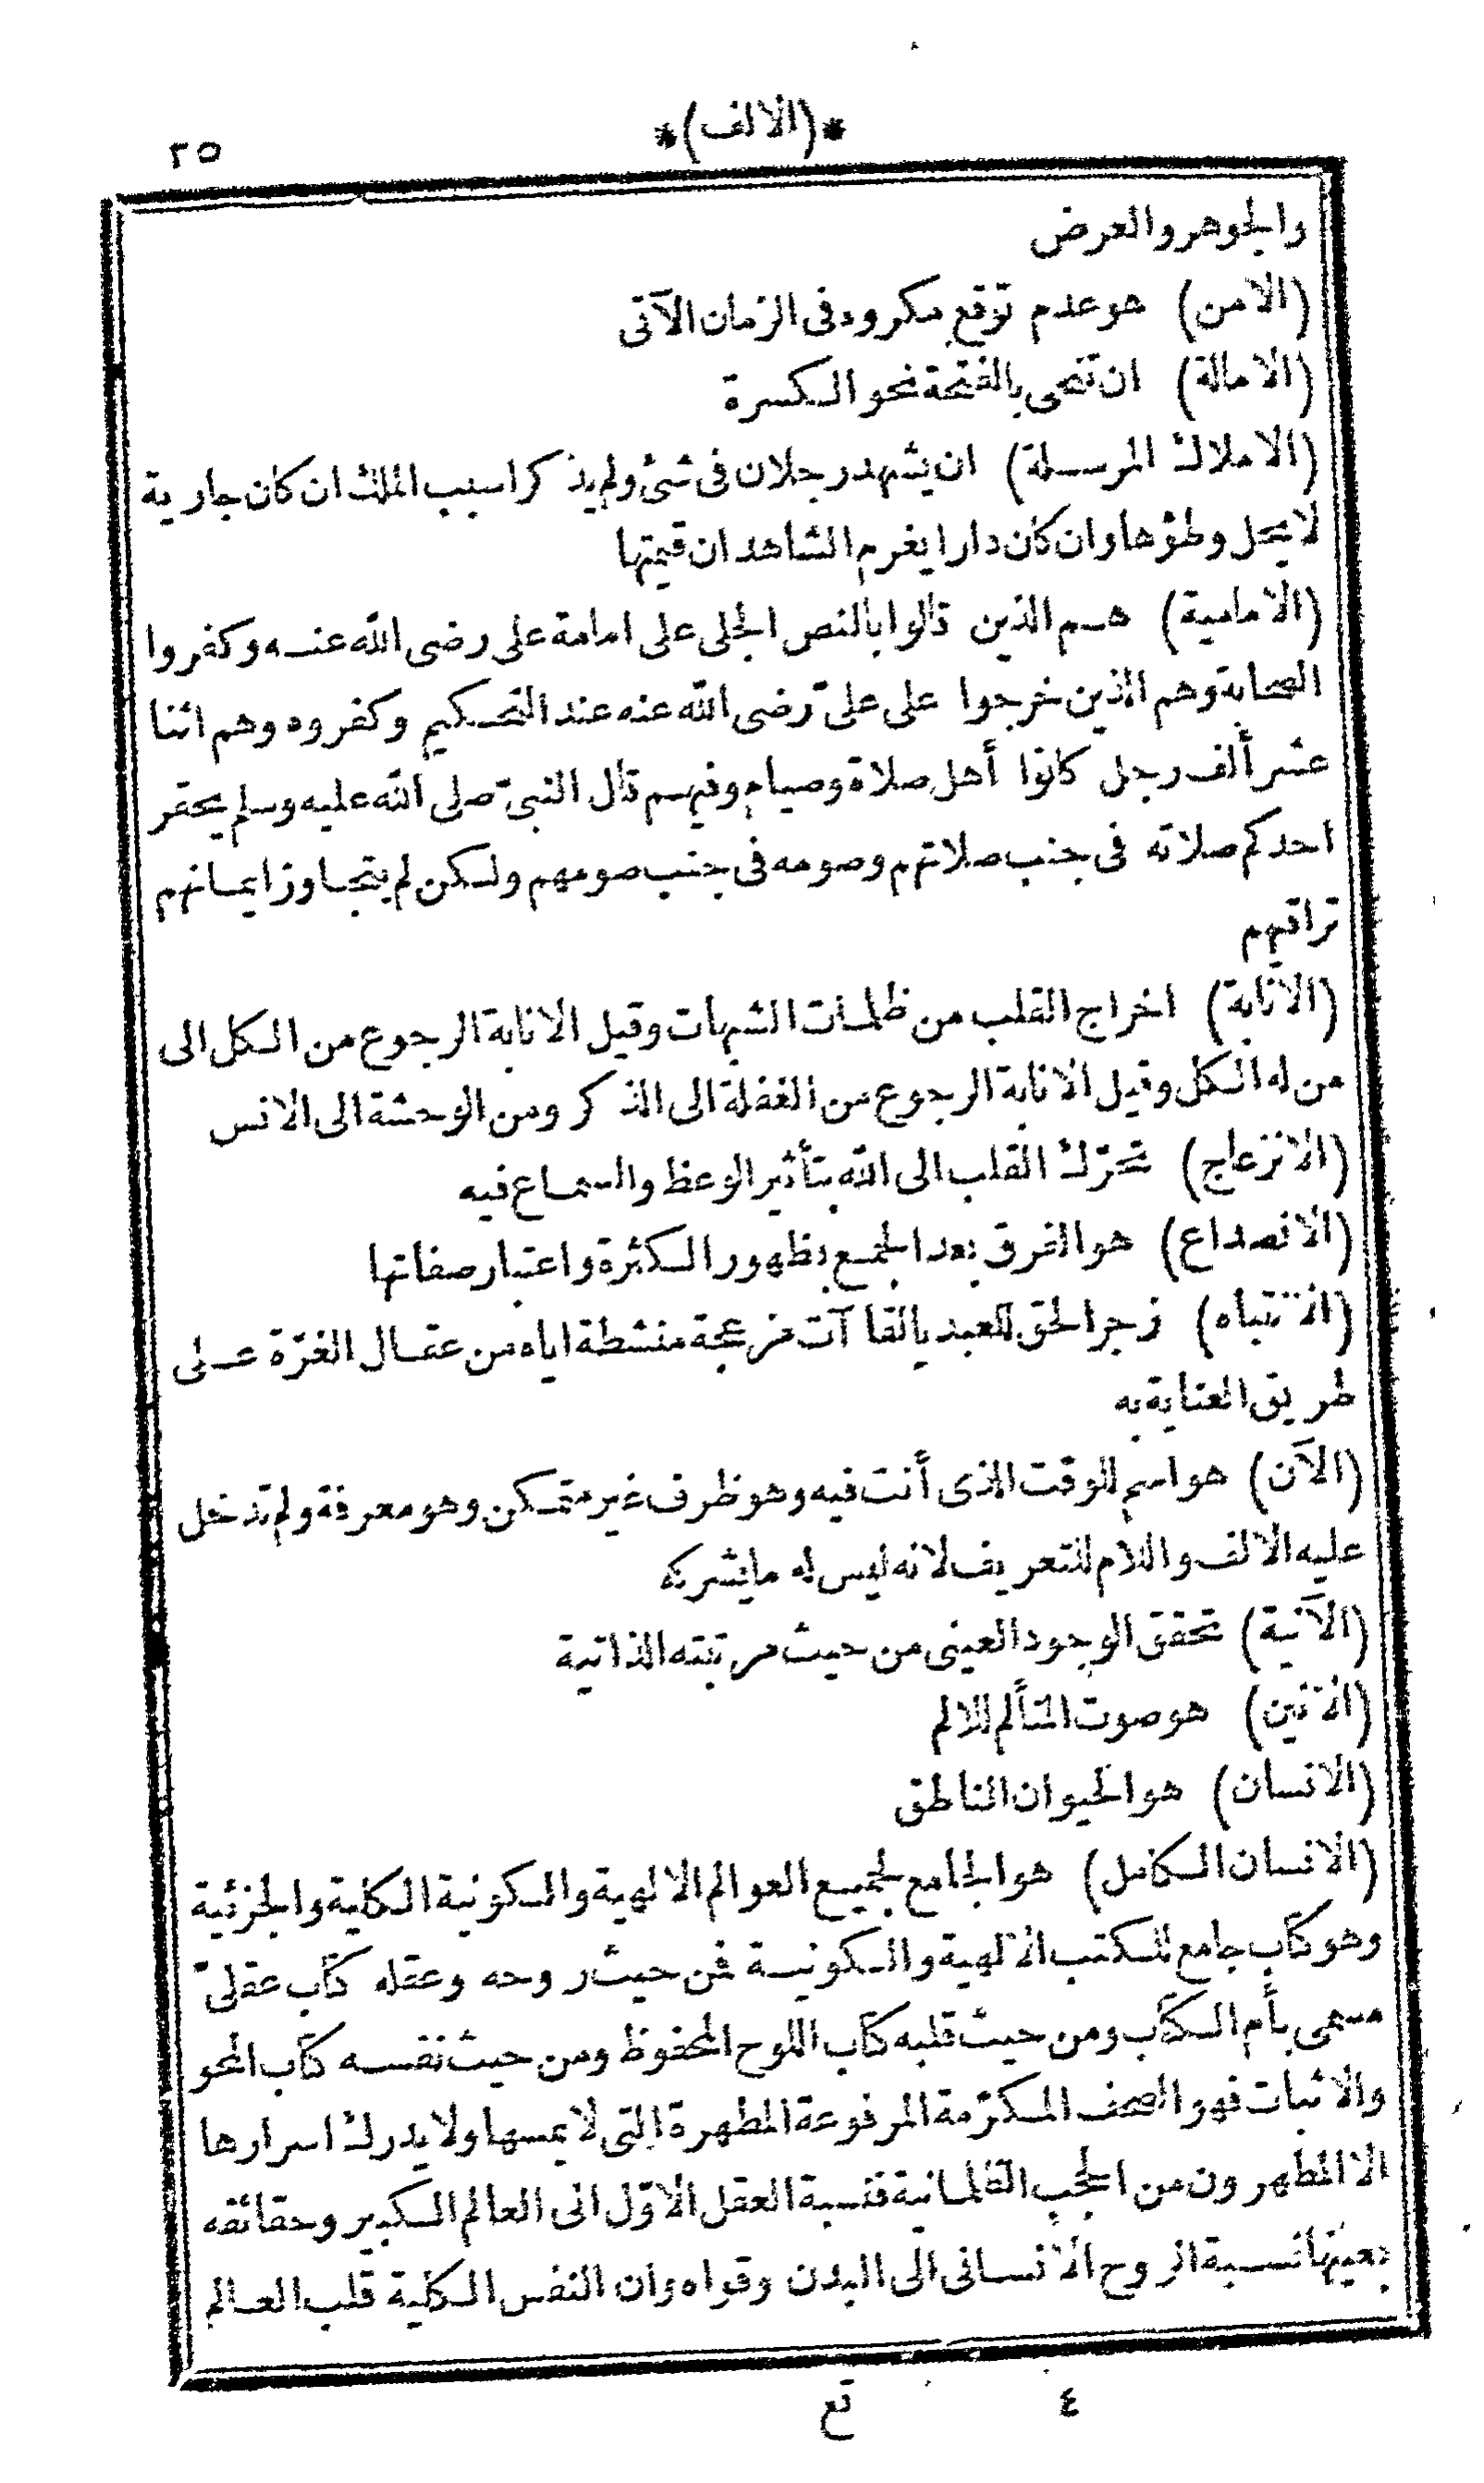 *(الالف)*
٢٥
والجوهر والعرض
(الامن) هو عدم توقع مكروه فى الزمان الآتى
(الامالة) ان تنحى بالفتحة نحو الكسرة
(الاملاك المرسلة) ان يشهد رجلان فى شئ ولم يذكرا سبب الملك ان كان جارية
لا يحل وطؤها وان كان دارا يغرم الشاهدان قيمتها
(الامامية) هم الذين قالوا بالنص الجلى على امامة على رضى الله عنه وكفروا
الصحابة وهم الذين خرجوا على علىّ رضى الله عنه عند التحكيم وكفروه وهم اثنا
عشر ألف رجل كانوا أهل صلاة وصيام وفيهم قال النبىّ صلى الله عليه وسلم يحقر
احدكم صلاته فى جنب صلاتهم وصومه فى جنب صومهم ولكن لم يتجاوز ايمانهم
تراقيهم
(الانابة) اخراج القلب من ظلمات الشبهات وقيل الانابة الرجوع من الكل الى
من له الكل وقيل الانابة الرجوع من الغفلة الى الذكر ومن الوحشة الى الانس
(الانزعاج) تحرّك القلب الى الله بتأثير الوعظ والسماع فيه
(الانصداع) هو الفرق بعد الجمع بظهور الكثرة واعتبار صفاتها
(الانتباه) زجر الحق للعبد بالقاآت مزعجة منشطة اياه من عقال الغرّة على
طريق العناية به
(الآن) هو اسم للوقت الذى أنت فيه وهو ظرف غير متمكن وهو معرفة ولم تدخل
عليه الالف واللام للتعريف لانه ليس له ما يشركه
(الآنية) تحقق الوجود العينى من حيث مرتبته الذاتية
(الانين) هو صوت المتألم للالم
(الانسان) هو الحيوان الناطق
(الانسان الكامل) هو الجامع لجميع العوالم الالهية والكونية الكلية والجزئية
وهو كتاب جامع للكتب الالهية والكونية فمن حيث روحه وعقله كتاب عقلىّ
مسمى بأم الكتاب ومن حيث قلبه كتاب اللوح المحفوظ ومن حيث نفسه كتاب المحو
والاثبات فهو الصحف المكرّمة المرفوعة المطهرة التى لا يمسها ولا يدرك اسرارها
الا المطهرون من الحجب الظلمانية فنسبة العقل الاوّل الى العالم الكبير وحقائقه
بعينها نسبة الروح الانسانى الى البدن وقواه وان النفس الكلية قلب العالم
٤ تع